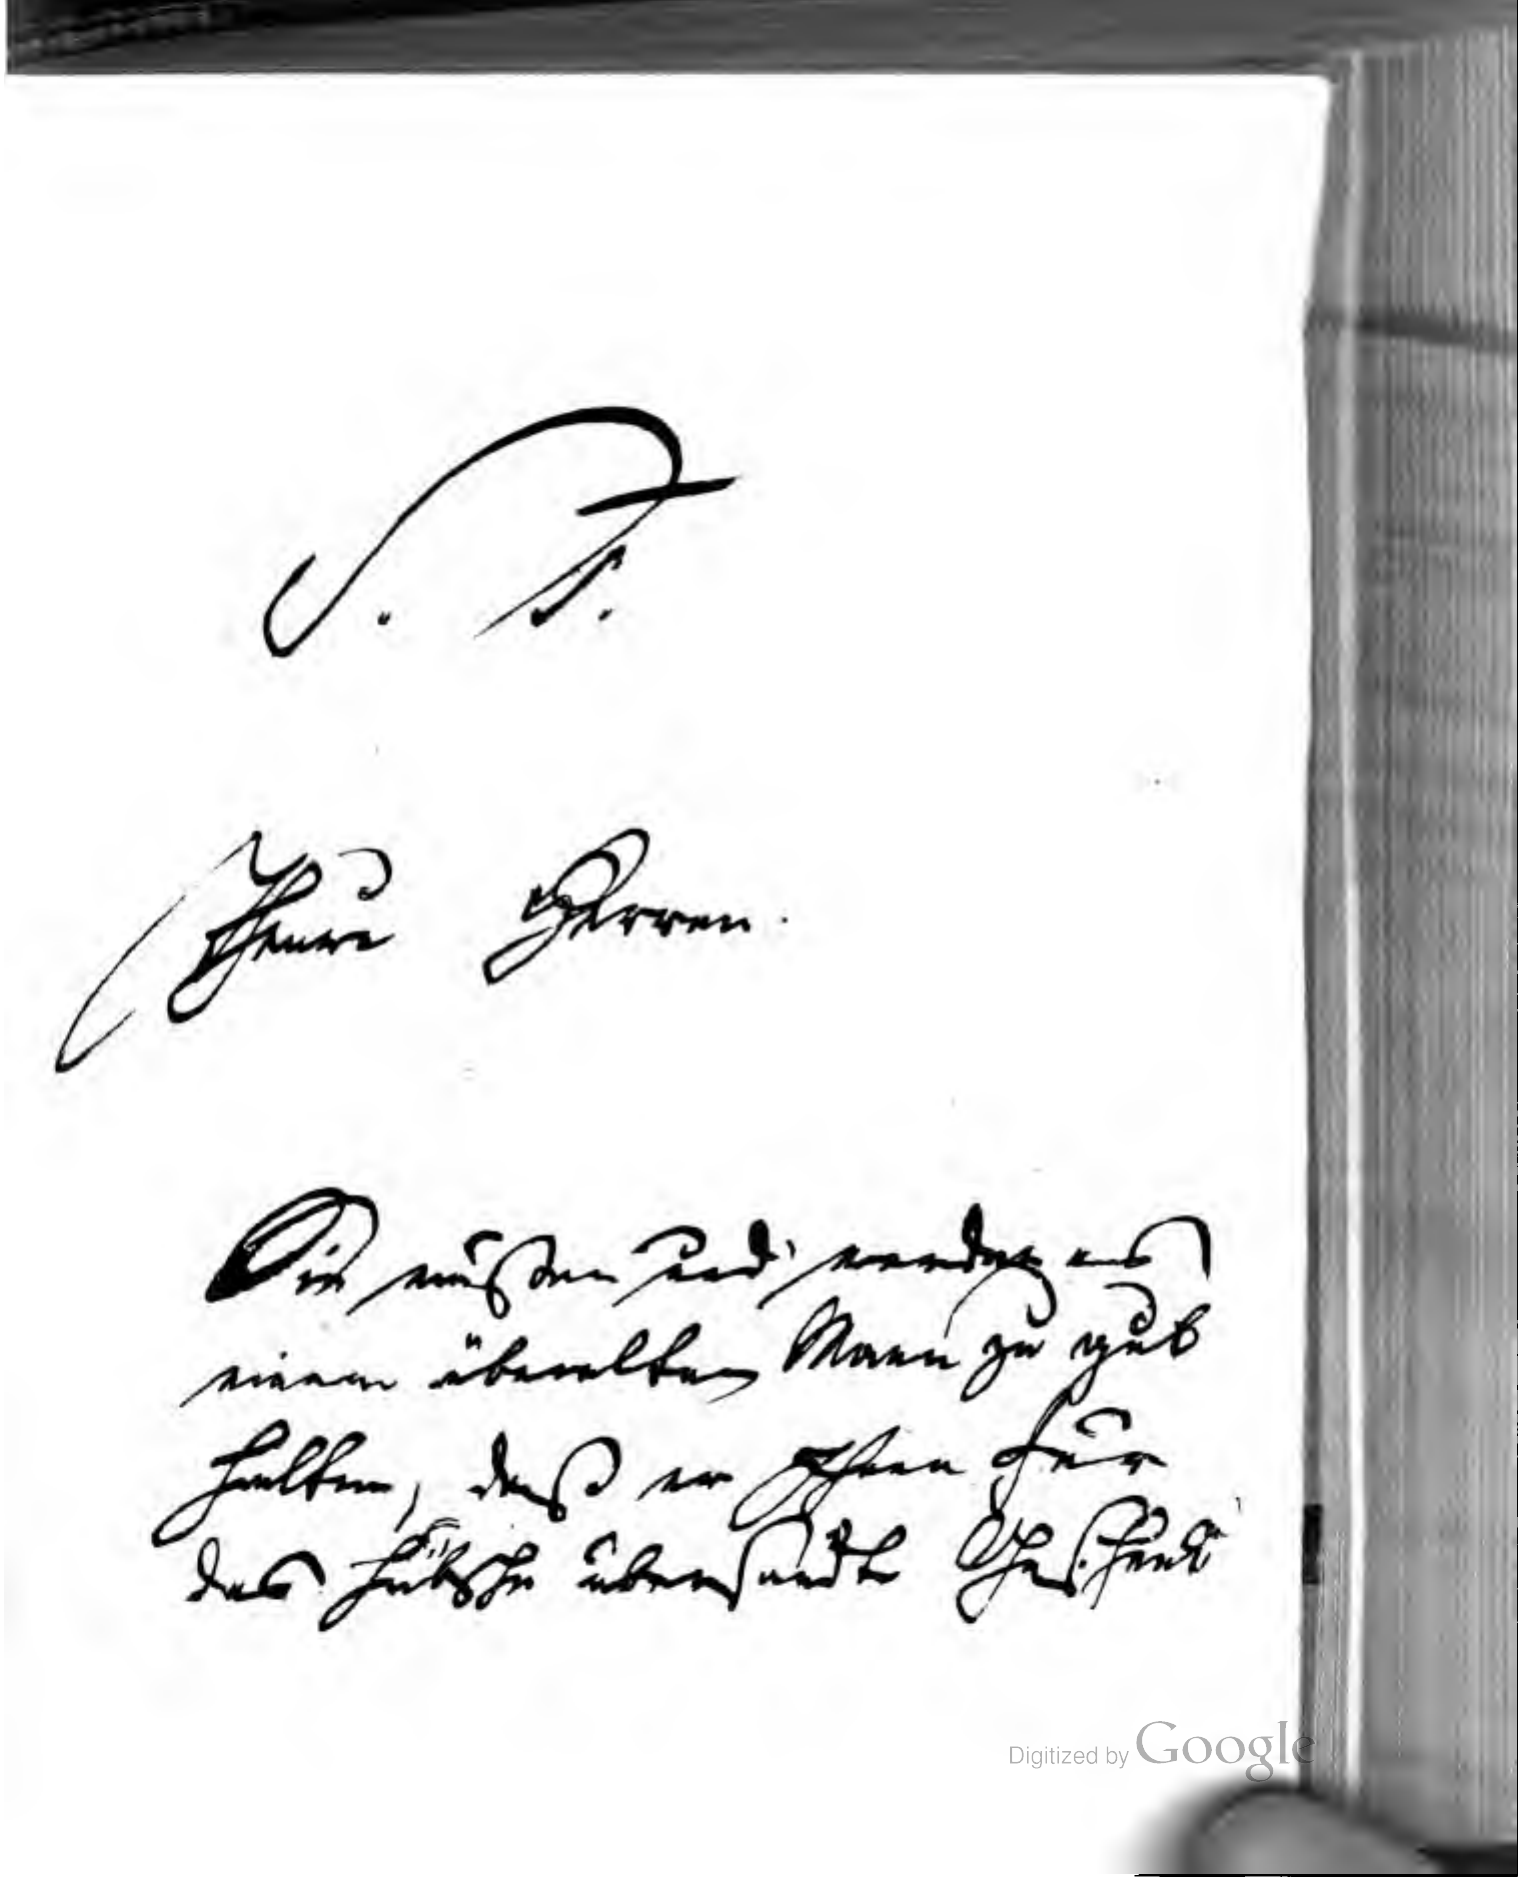 S. T.
Theure Herren.
Sie müßen und werden es
einem überalten Mann zu gut
halten, daß er Ihnen für
das hübsche übersandte Geschenk
Digitized by Google